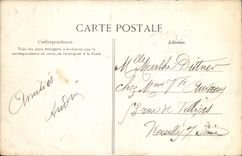 CARTE POSTALE
Correspondance
Tous les pays étrangers n'acceptent pas
la correspondance au recto, se renseigner à la Poste
Adresse
Mlle Marthe Ditner
chez Mme Vve
rue de Villiers
Neuilly s/ Seine
Amitiés
André